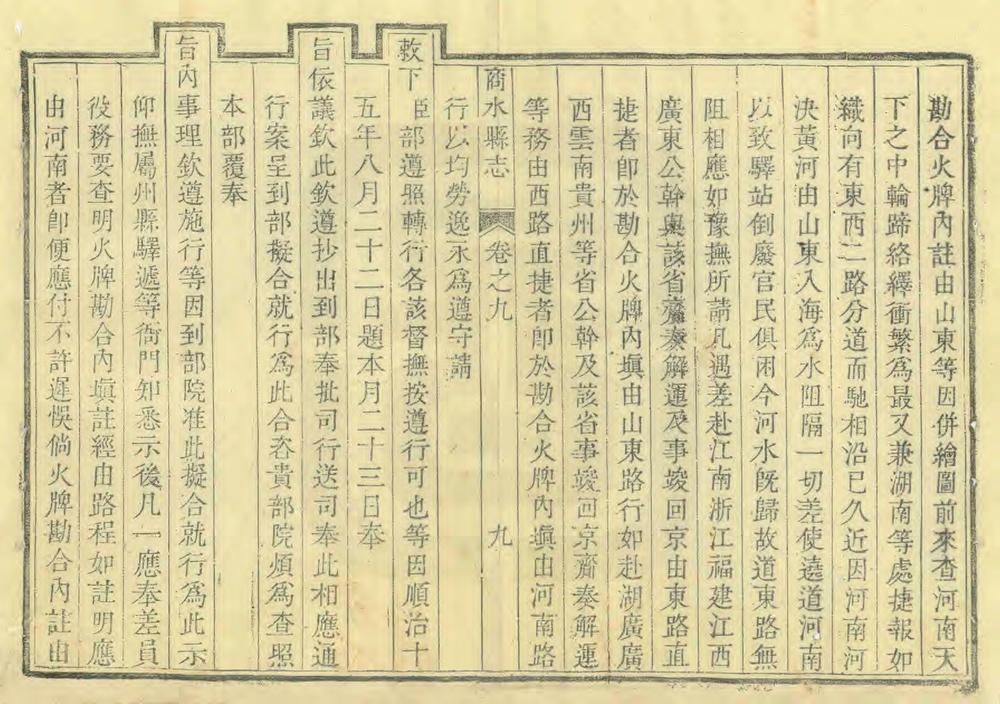 勘合火牌內註由山東等因併繪圖前來查河南天
下之中輪蹄絡繹衝繁爲最又兼湖南等處捷報如
織向有東西二路分道而馳相沿已久近因河南河
決黃河由山東入海爲水阻隔一切差使遶道河南
以致驛站倒廢官民俱困今河水旣歸故道東路無
阻相應如豫撫所請凡遇差赴江南浙江福建江西
廣東公幹與該省齎奏解運及事竣回京由東路直
捷者卽於勘合火牌內塡由山東路行如赴湖廣廣
西雲南貴州等省公幹及該省事竣回京齎奏解運
等務由西路直捷者卽於勘合火牌內塡由河南路
商水縣志 卷之九 九
行以均勞逸永爲遵守請
敕下臣部遵照轉行各該督撫按遵行可也等因順治十
五年八月二十二日題本月二十三日奉
旨依議欽此欽遵抄出到部奉批司行送司奉此相應通
行案呈到部擬合就行爲此合咨貴部院煩爲查照
本部覆奉
旨內事理欽遵施行等因到部院准此擬合就行爲此示
仰撫屬州縣驛遞等衙門知悉示後凡一應奉差員
役務要查明火牌勘合內塡註經由路程如註明應
由河南者卽便應付不許遲悞倘火牌勘合內註由